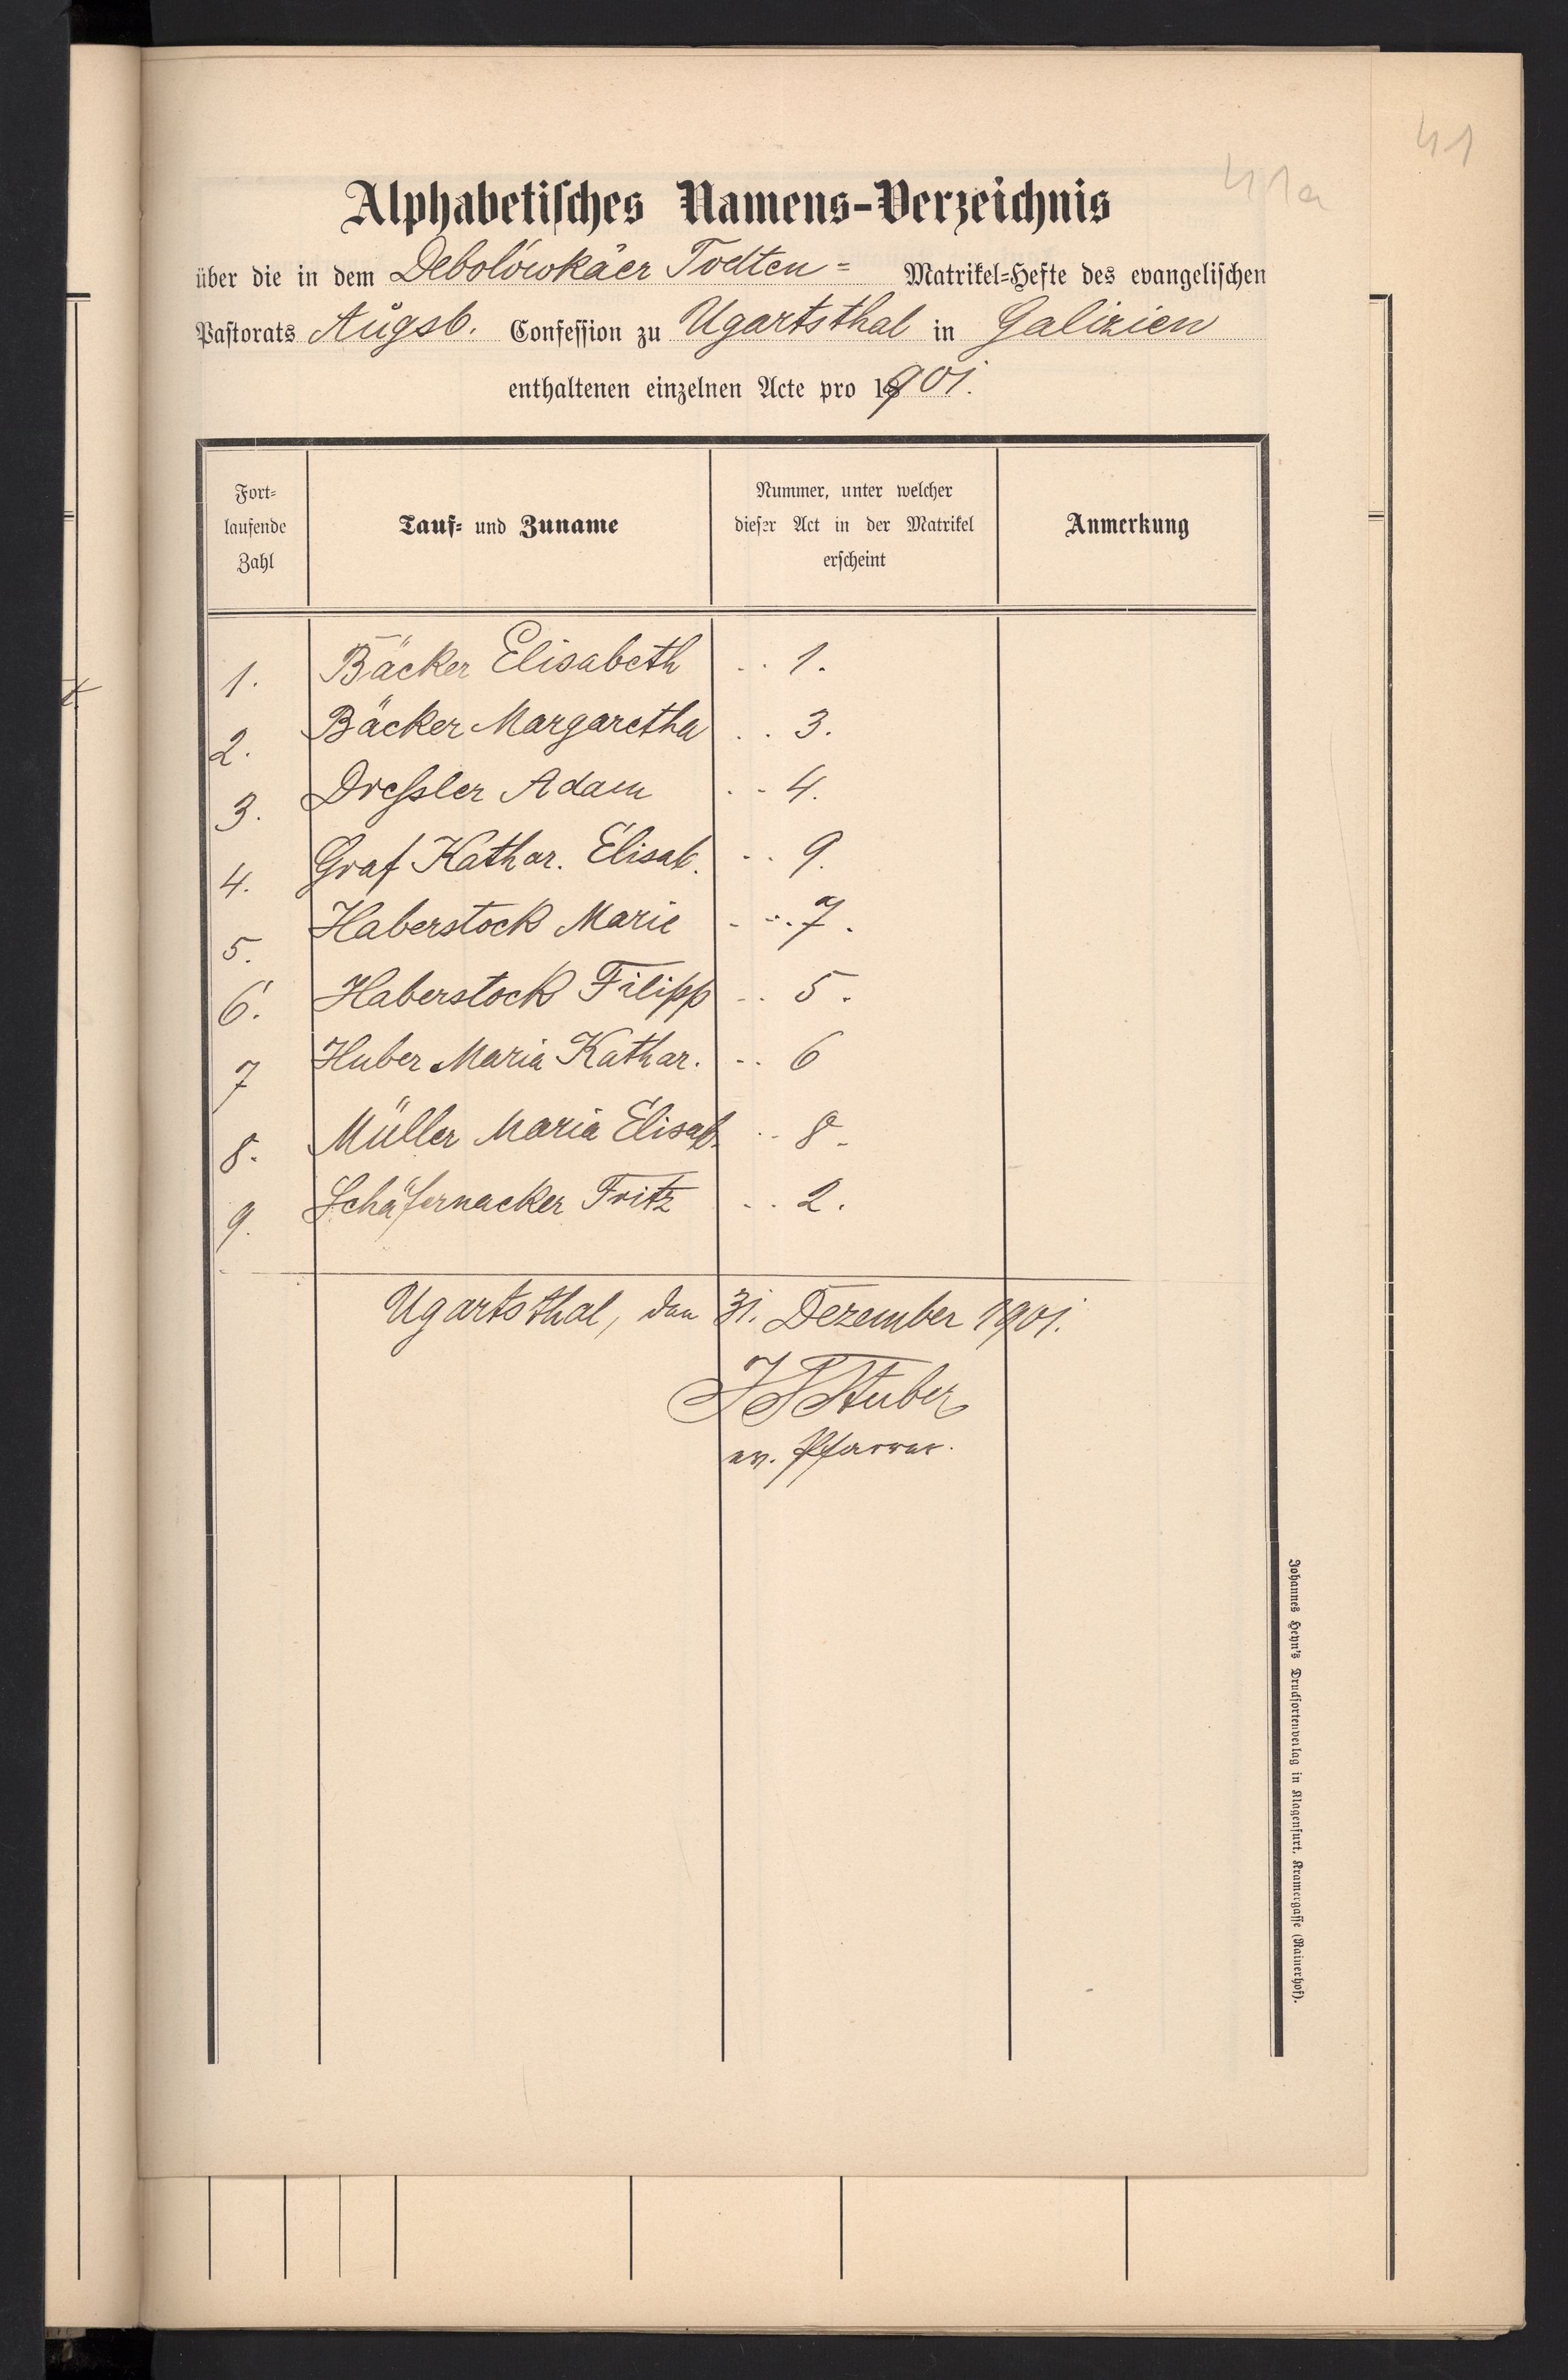 41
41a
Alphabetisches Namens-Verzeichnis
über die in dem Debolówkäer Todten= Matrikel=Hefte des evangelischen
Pastorats Augsb. Confession zu Ugartsthal in Galizien
enthaltenen einzelnen Acte pro 1901.
Fort=
laufende
Zahl
Tauf= und Zuname
Nummer, unter welcher
dieser Act in der Matrikel
erscheint
Anmerkung
1. Bäcker Elisabeth . . 1.
2. Bäcker Margaretha . . 3.
3. Dreßler Adam . . 4.
4. Graf Kathar. Elisab. . . 9.
5. Haberstock Marie . . . 7.
6. Haberstock Filipp . . 5.
7 Huber Maria Kathar. . . 6
8. Müller Maria Elisab. . . 8.
9. Schäfernacker Fritz . . 2.
Ugartsthal, den 31. Dezember 1901.
Huber
ev. Pfarrer.
Johannes Heyn's Drucksortenverlag in Klagenfurt, Kramergasse (Rainerhof).